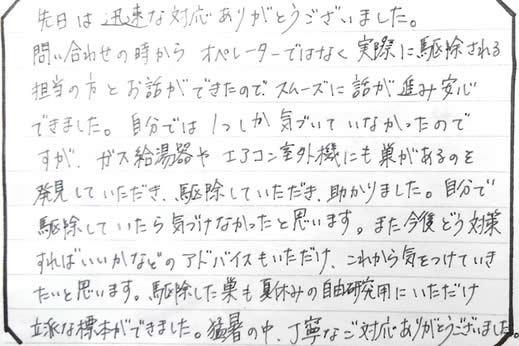 先日は迅速な対応ありがとうございました。
問い合わせの時から オペレーターではなく 実際に駆除される
担当の方とお話ができたので スムーズに話が進み安心
できました。自分では1つしか気づいていなかったので
すが、ガス給湯器や エアコン室外機にも巣があるのを
発見していただき、駆除していただき、助かりました。自分で
駆除していたら気づけなかったと思います。また今後どう対策
すればいいかなどのアドバイスもいただけ、これから気をつけていき
たいと思います。駆除した巣も夏休みの自由研究用にいただけ
立派な標本ができました。猛暑の中、丁寧なご対応ありがとうございました。